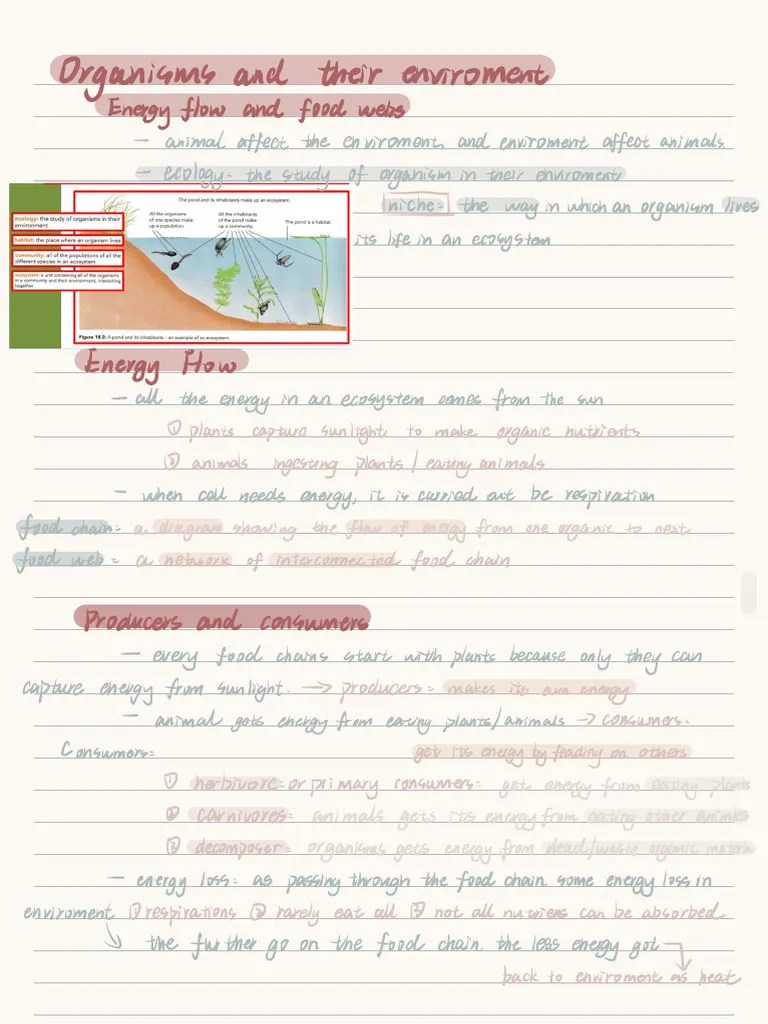 Organisms and their enviroment
Energy flow and food webs
– animal affect the enviroment, and enviroment affect animals.
– ecology: the study of organism in their enviroment
niche= the way in which an organism lives
its life in an ecosystem
The pond and its inhabitants make up an ecosystem.
All the organisms
of one species make
up a population.
All the inhabitants
of the pond make
up a community.
The pond is a habitat.
ecology: the study of organisms in their
environment
habitat: the place where an organism lives
community: all of the populations of all the
different species in an ecosystem
ecosystem: a unit containing all of the organisms
in a community and their environment, interacting
together
Figure 18.2: A pond and its inhabitants – an example of an ecosystem.
Energy flow
– all the energy in an ecosystem comes from the sun
① plants capture sunlight, to make organic nutrients
② animals ingesting plants / eating animals
– when cell needs energy, it is carried out be respiration
food chain= a diagram showing the flow of energy from one organic to next
food web = a network of interconnected food chain
Producers and consumers
– every food chains start with plants because only they can
capture energy from sunlight. → producers= makes its own energy
– animal gets energy from eating plants/animals → consumers=
Consumers= get its energy by feading on others
① herbivore=or primary consumers= get energy from eating plants
② carnivores= animals gets its energy from eating other animles
③ decomposer= organisms gets energy from dead/waste organic
– energy loss= as passing through the food chain, some energy loss in
enviroment ① respirations ② rarely eat all ③ not all nutriens can be absorbed
the further go on the food chain, the less energy got
back to enviroment as heat